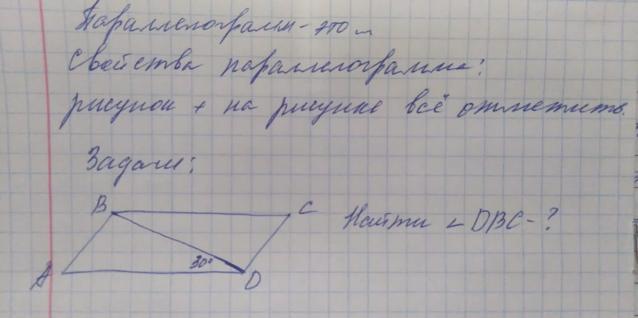 Параллелограмм - это ...
Свойства параллелограмма:
рисунок + на рисунке всё отметить.
Задачи:
B C
Найти ∠DBC - ?
30°
A D